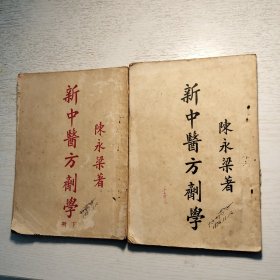 新中醫方劑學
陳永梁著
下冊
新中醫方劑學
陳永梁著